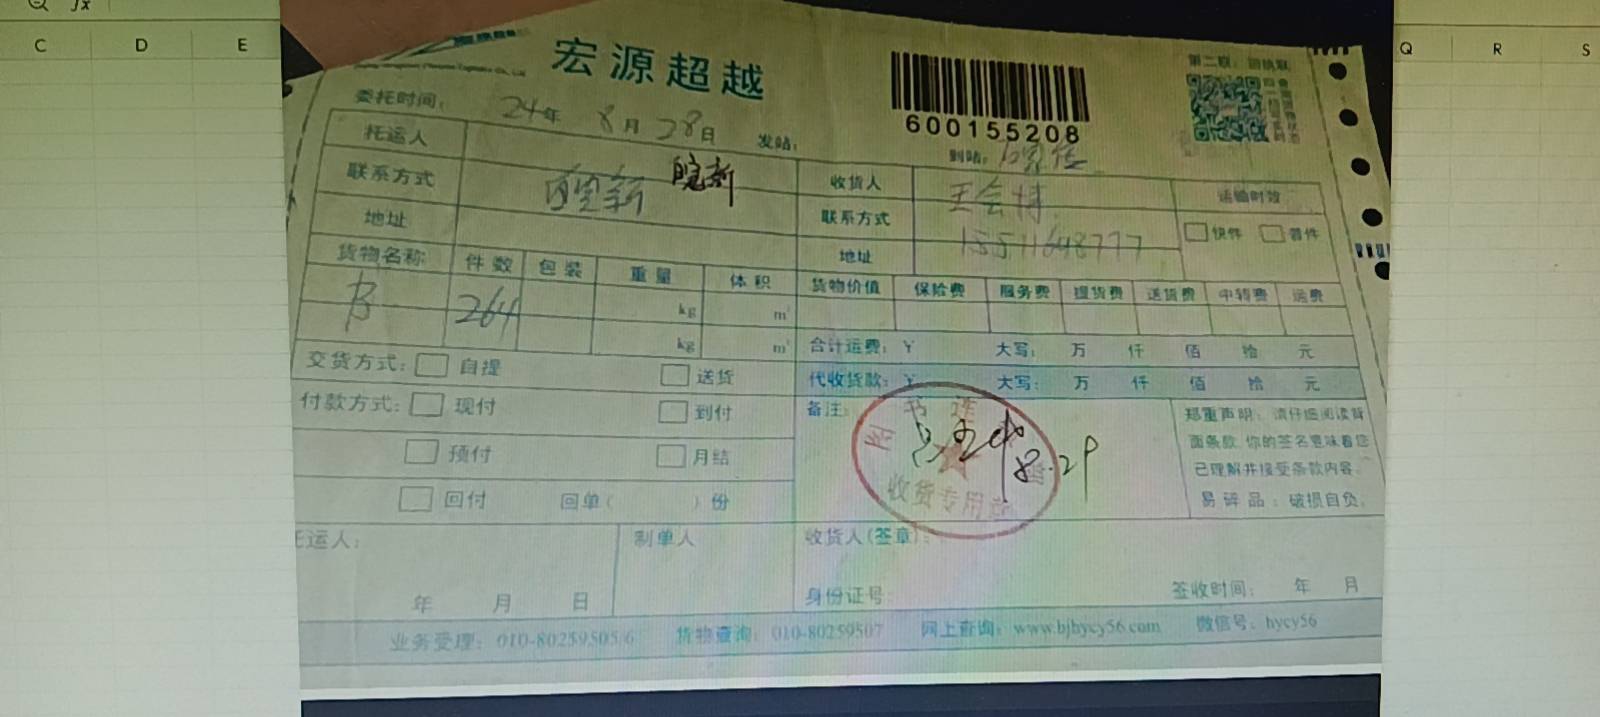 fx
C D E Q R S
宏源超越
600155208
第二联：回执联
委托时间： 24年 8月 28日 发站： 到站：
托运人 收货人 王会博 运输时效
联系方式 皖新 皖新 联系方式 15511648777 快件 普件
地址 地址
货物名称 件数 包装 重量 体积 货物价值 保险费 服务费 提货费 送货费 中转费 运费
264 kg m³
kg m³ 合计运费：￥ 大写： 万 仟 佰 拾 元
交货方式： 自提 送货 代收货款：￥ 大写： 万 仟 佰 拾 元
付款方式： 现付 到付 备注：
预付 月结
回付 回单（ ）份
8.29
收货专用章
郑重声明：请仔细阅读背
面条款，你的签名意味着您
已理解并接受条款内容。
易碎品：破损自负。
托运人： 制单人 收货人(签章)：
年 月 日 身份证号： 签收时间： 年 月
业务受理：010-80259505/6 货物查询：010-80259507 网上查询：www.bjhycy56.com 微信号：hycy56